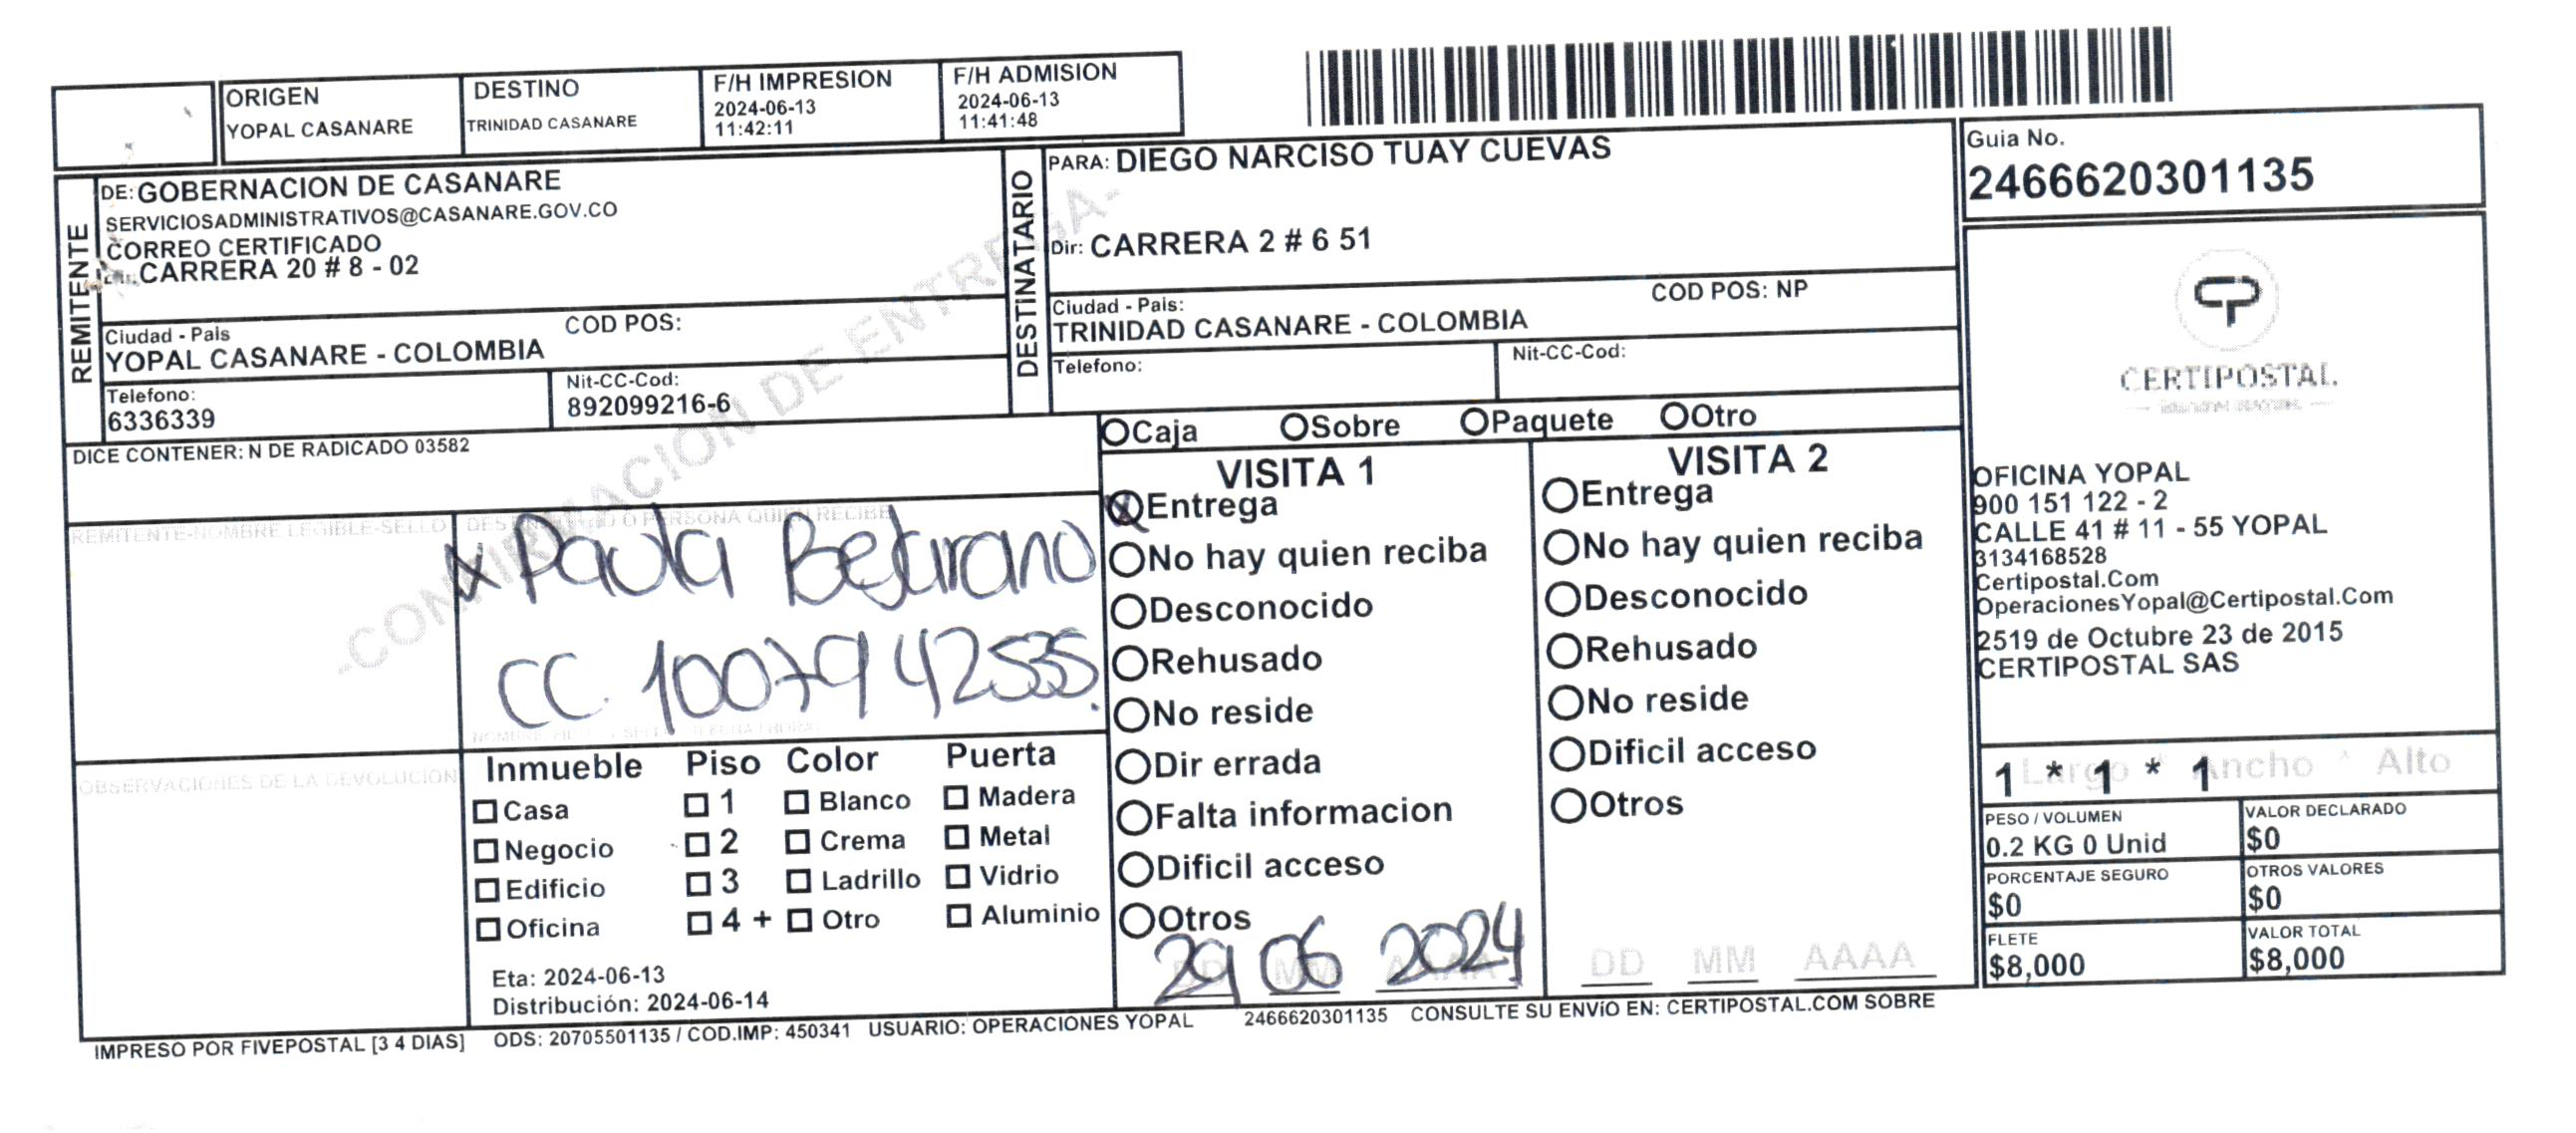 ORIGEN
YOPAL CASANARE
DESTINO
TRINIDAD CASANARE
F/H IMPRESION
2024-06-13
11:42:11
F/H ADMISION
2024-06-13
11:41:48
REMITENTE
DE: GOBERNACION DE CASANARE
SERVICIOSADMINISTRATIVOS@CASANARE.GOV.CO
CORREO CERTIFICADO
CARRERA 20 # 8 - 02
Ciudad - Pais
COD POS:
YOPAL CASANARE - COLOMBIA
Telefono:
6336339
Nit-CC-Cod:
892099216-6
DESTINATARIO
PARA: DIEGO NARCISO TUAY CUEVAS
Dir: CARRERA 2 # 6 51
Ciudad - Pais:
COD POS: NP
TRINIDAD CASANARE - COLOMBIA
Telefono:
Nit-CC-Cod:
Guia No.
2466620301135
-CONFIRMACION DE ENTREGA-
DICE CONTENER: N DE RADICADO 03582
Caja Sobre Paquete Otro
REMITENTE-NOMBRE LEGIBLE-SELLO
DESTINATARIO O PERSONA QUIEN RECIBE
x Paula Beltrano
CC. 1007942535.
OBSERVACIONES DE LA DEVOLUCION
Inmueble Piso Color Puerta
Casa 1 Blanco Madera
Negocio 2 Crema Metal
Edificio 3 Ladrillo Vidrio
Oficina 4 + Otro Aluminio
Eta: 2024-06-13
Distribución: 2024-06-14
VISITA 1
Entrega
No hay quien reciba
Desconocido
Rehusado
No reside
Dir errada
Falta informacion
Dificil acceso
Otros
29 06 2024
VISITA 2
Entrega
No hay quien reciba
Desconocido
Rehusado
No reside
Dificil acceso
Otros
DD MM AAAA
CERTIPOSTAL
OFICINA YOPAL
900 151 122 - 2
CALLE 41 # 11 - 55 YOPAL
3134168528
Certipostal.Com
OperacionesYopal@Certipostal.Com
2519 de Octubre 23 de 2015
CERTIPOSTAL SAS
1 * 1 * 1
Largo * Ancho * Alto
PESO / VOLUMEN
0.2 KG 0 Unid
VALOR DECLARADO
$0
PORCENTAJE SEGURO
$0
OTROS VALORES
$0
FLETE
$8,000
VALOR TOTAL
$8,000
IMPRESO POR FIVEPOSTAL [3 4 DIAS] ODS: 20705501135 / COD.IMP: 450341 USUARIO: OPERACIONES YOPAL 2466620301135 CONSULTE SU ENVíO EN: CERTIPOSTAL.COM SOBRE